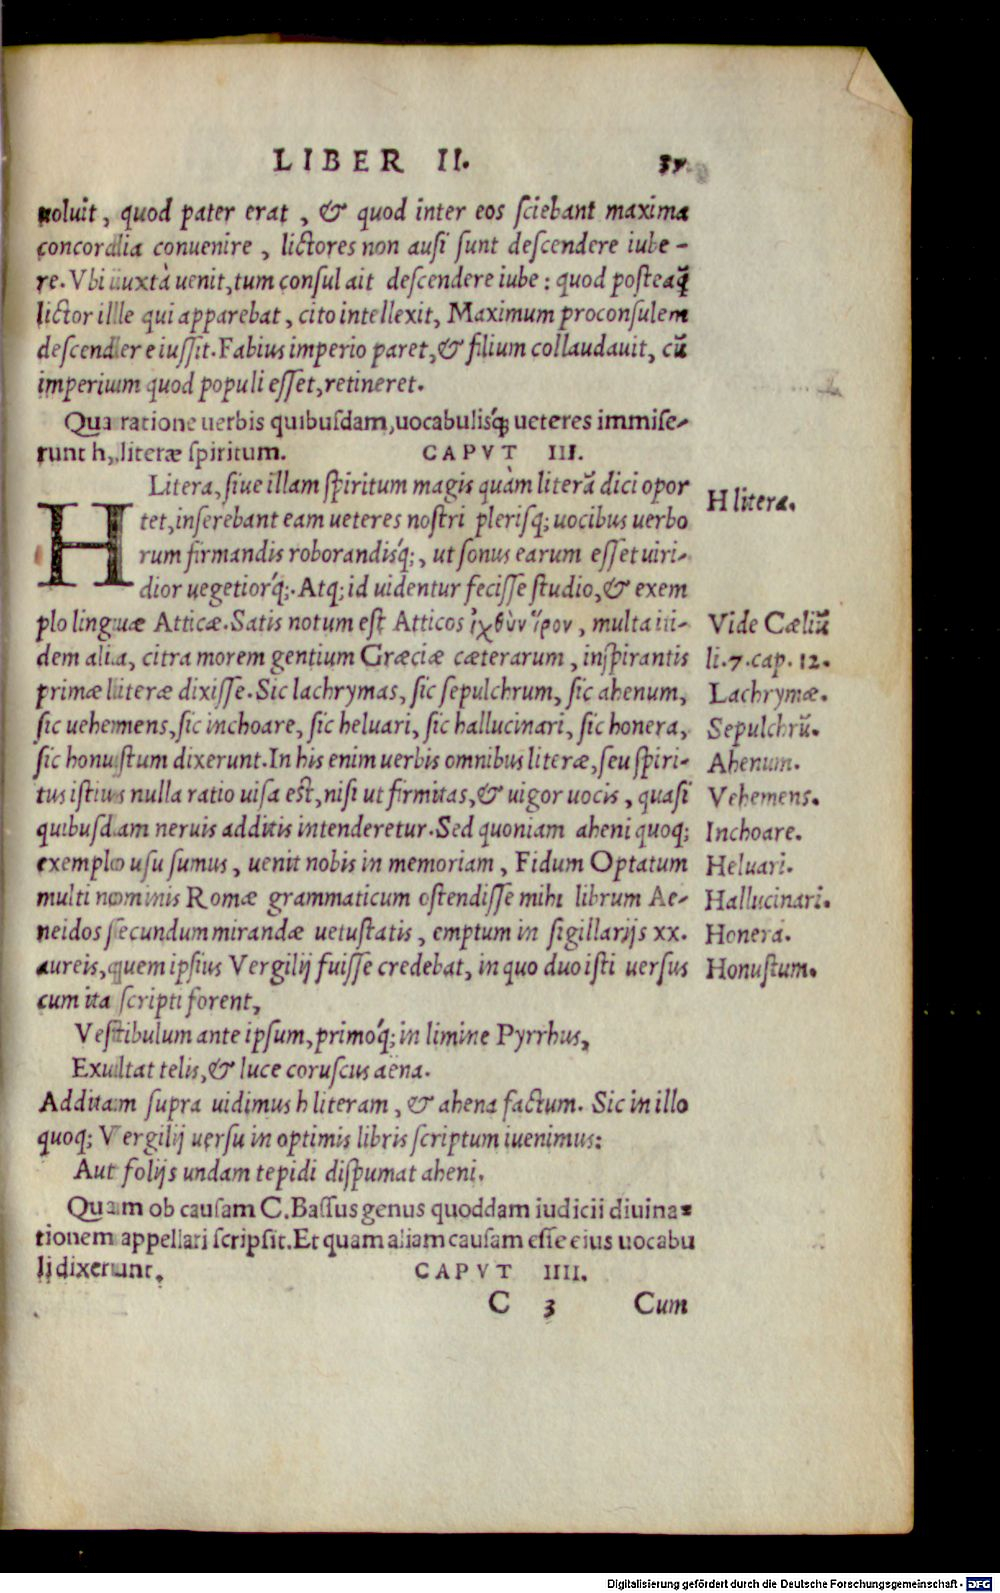 LIBER II. 37
noluit, quod pater erat, & quod inter eos sciebant maxima
concordia conuenire, lictores non ausi sunt descendere iube-
re. Vbi iuxtà uenit, tum consul ait descendere iube: quod posteaq̃
lictor ille qui apparebat, cito intellexit, Maximum proconsulem
descendere iussit. Fabius imperio paret, & filium collaudauit, cũ
imperium quod populi esset, retineret.
Qua ratione uerbis quibusdam, uocabulisq́ue ueteres immise-
runt h, literæ spiritum. CAPVT III.
H Litera, siue illam spiritum magis quàm literã dici opor
tet, inserebant eam ueteres nostri plerisq; uocibus uerbo
rum firmandis roborandisq́;, ut sonus earum esset uiri-
dior uegetiorq́;. Atq; id uidentur fecisse studio, & exem
plo linguæ Atticæ. Satis notum est Atticos ἰχθὺν ἵρον, multa iti-
dem alia, citra morem gentium Græciæ cæterarum, inspirantis
primæ literæ dixisse. Sic lachrymas, sic sepulchrum, sic ahenum,
sic uehemens, sic inchoare, sic heluari, sic hallucinari, sic honera,
sic honustum dixerunt. In his enim uerbis omnibus literæ, seu spiri-
tus istius nulla ratio uisa est, nisi ut firmitas, & uigor uocis, quasi
quibusdam neruis additis intenderetur. Sed quoniam aheni quoq;
exemplo usu sumus, uenit nobis in memoriam, Fidum Optatum
multi nominis Romæ grammaticum ostendisse mihi librum Ae-
neidos secundum mirandæ uetustatis, emptum in sigillarijs xx.
aureis, quem ipsius Vergilij fuisse credebat, in quo duo isti uersus
cum ita scripti forent,
Vestibulum ante ipsum, primoq́; in limine Pyrrhus,
Exultat telis, & luce coruscus aëna.
Additam supra uidimus h literam, & ahena factum. Sic in illo
quoq; Vergilij uersu in optimis libris scriptum iuenimus:
Aut folijs undam tepidi dispumat aheni.
Quam ob causam C. Bassus genus quoddam iudicii diuina-
tionem appellari scripsit. Et quam aliam causam esse eius uocabu
li dixerunt. CAPVT IIII.
C 3 Cum
H litera.
Vide Cæliũ
li. 7. cap. 12.
Lachrymæ.
Sepulchrũ.
Ahenum.
Vehemens.
Inchoare.
Heluari.
Hallucinari.
Honera.
Honustum.
Digitalisierung gefördert durch die Deutsche Forschungsgemeinschaft - DFG